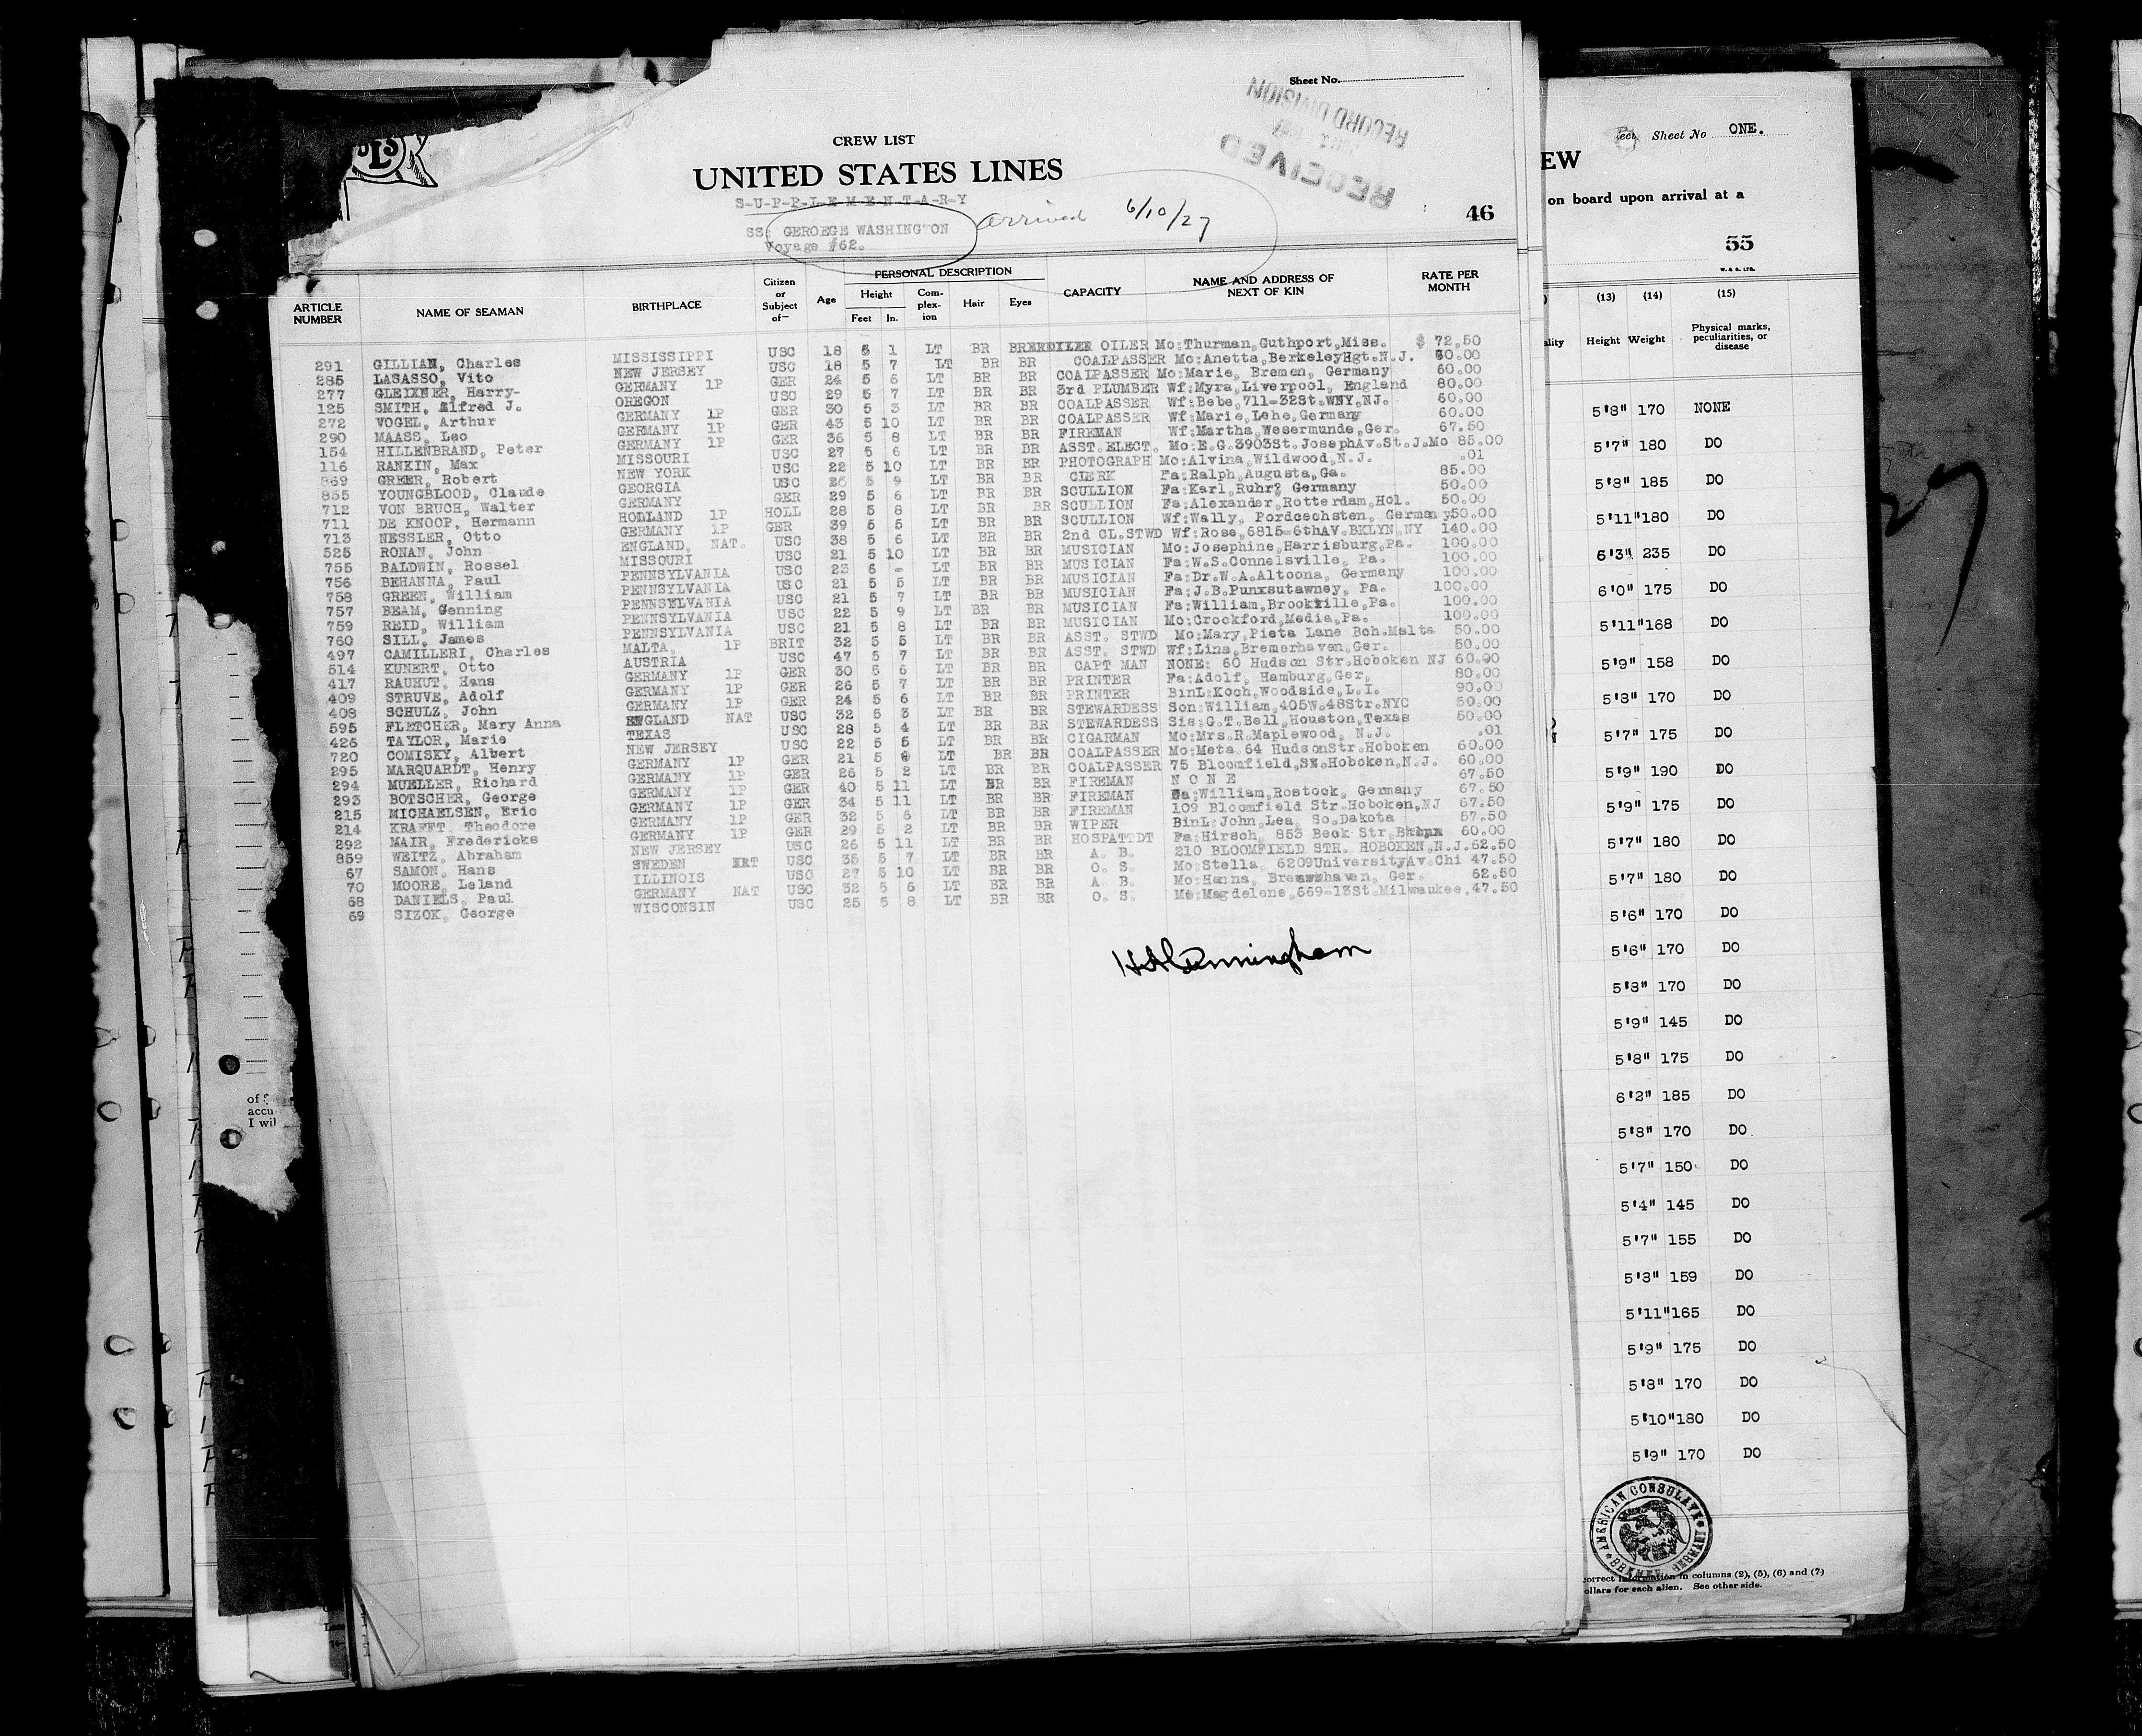 Sheet No.
RECEIVED
RECORD DIVISION
CREW LIST
UNITED STATES LINES
S-U-P-P-L-E-M-E-N-T-A-R-Y
SS. GEROEGE WASHINGTON
Voyage #62.
arrived 6/10/27
46
ARTICLE NUMBER NAME OF SEAMAN BIRTHPLACE Citizen or Subject of— Age PERSONAL DESCRIPTION Height Feet In. Complexion Hair Eyes CAPACITY NAME AND ADDRESS OF NEXT OF KIN RATE PER MONTH
291 GILLIAN, Charles MISSISSIPPI USC 18 5 1 LT BR OILER Mo:Thurman,Guthport,Miss. $ 72,50
285 LASASSO, Vito NEW JERSEY USC 18 5 7 LT BR BR COALPASSER Mo:Anetta,BerkeleyHgt.N.J. 60.00
277 GLEIXNER, Harry- GERMANY 1P GER 24 5 6 LT BR BR COALPASSER Mo:Marie, Bremen, Germany 60.00
125 SMITH, Alfred J. OREGON USC 29 5 7 LT BR BR 3rd PLUMBER Wf:Myra,Liverpool, England 80.00
272 VOGEL, Arthur GERMANY 1P GER 30 5 3 LT BR BR COALPASSER Wf:Bebe,711-32St.WNY,NJ. 60.00
290 MAASS, Leo GERMANY 1P GER 43 5 10 LT BR BR COALPASSER Wf:Marie,Lehe,Germany 60.00
154 HILLENBRAND, Peter GERMANY 1P GER 36 5 8 LT BR BR FIREMAN Wf:Martha,Wesermunde,Ger. 67.50
116 RANKIN, Max MISSOURI USC 27 5 6 LT BR BR ASST.ELECT. Mo:E.G.3903St.JosephAv.St.J.Mo 85.00
869 GREER, Robert NEW YORK USC 22 5 10 LT BR BR PHOTOGRAPH Mo:Alvina,Wildwood,N.J. .01
855 YOUNGBLOOD, Claude GEORGIA USC 26 5 9 LT BR BR CLERK Fa:Ralph,Augusta,Ga. 85.00
712 VON BRUCH, Walter GERMANY GER 29 5 6 LT BR BR SCULLION Fa:Karl,Ruhr? Germany 50.00
711 DE KNOOP, Hermann HOLLAND 1P HOLL 28 5 8 LT BR BR SCULLION Fa:Alexander,Rotterdam,Hol. 50.00
713 NESSLER, Otto GERMANY 1P GER 39 5 5 LT BR BR SCULLION Wf:Wally, Pordcechsten, Germany50.00
525 RONAN, John ENGLAND, NAT. USC 38 5 6 LT BR BR 2nd CL.STWD Wf:Rose,6815-6thAV.BKLYN,NY 140.00
755 BALDWIN, Rossel MISSOURI USC 21 5 10 LT BR BR MUSICIAN Mo:Josephine,Harrisburg,Pa. 100.00
756 BEHANNA, Paul PENNSYLVANIA USC 23 6 - LT BR BR MUSICIAN Fa:W.S.Connelsville, Pa. 100.00
758 GREEN, William PENNSYLVANIA USC 21 5 5 LT BR BR MUSICIAN Fa:Dr.W.A.Altoona, Germany 100.00
757 BEAM, Genning PENNSYLVANIA USC 21 5 7 LT BR BR MUSICIAN Fa:J.B.Punxsutawney, Pa. 100.00
759 REID, William PENNSYLVANIA USC 22 5 9 LT BR BR MUSICIAN Fa:William,Brookville,Pa. 100.00
760 SILL, James PENNSYLVANIA USC 21 5 8 LT BR BR MUSICIAN Mo:Crockford,Media,Pa. 100.00
497 CAMILLERI, Charles MALTA, 1P BRIT 32 5 5 LT BR BR ASST. STWD Mo:Mary,Pieta Lane Bch.Malta 50.00
514 KUNERT, Otto AUSTRIA USC 47 5 7 LT BR BR ASST. STWD Wf:Lina,Bremerhaven,Ger. 50.00
417 RAUHUT, Hans GERMANY 1P GER 30 5 6 LT BR BR CAPT MAN NONE: 60 Hudson Str.Hoboken NJ 60.00
409 STRUVE, Adolf GERMANY 1P GER 26 5 7 LT BR BR PRINTER Fa:Adolf, Hamburg,Ger, 80.00
408 SCHULZ, John GERMANY 1P GER 24 5 6 LT BR BR PRINTER BinL:Koch,Woodside,L.I. 90.00
595 FLETCHER, Mary Anna ENGLAND NAT USC 32 5 3 LT BR BR STEWARDESS Son:William,405W.48Str.NYC 50.00
426 TAYLOR, Marie TEXAS USC 28 5 4 LT BR BR STEWARDESS Sis:G.T.Bell,Houston,Texas 50.00
720 COMISKY, Albert NEW JERSEY USC 22 5 5 LT BR BR CIGARMAN Mo:Mrs.R.Maplewood, N.J. .01
295 MARQUARDT, Henry GERMANY 1P GER 21 5 LT BR BR COALPASSER Mo:Meta.64 HudsonStr.Hoboken 60.00
294 MUELLER, Richard GERMANY 1P GER 26 5 2 LT BR BR COALPASSER 75 Bloomfield,SN.Hoboken,N.J. 60.00
293 BOTSCHER, George GERMANY 1P GER 40 5 11 LT BR BR FIREMAN N O N E 67.50
215 MICHAELSEN, Eric GERMANY 1P GER 34 5 11 LT BR BR FIREMAN Fa:William,Rostock, Germany 67.50
214 KRAFFT, Theodore GERMANY 1P GER 32 5 6 LT BR BR FIREMAN 109 Bloomfield Str.Hoboken,NJ 67.50
292 MAIR, Fredericks GERMANY 1P GER 29 5 2 LT BR BR WIPER BinL:John,Lea, So.Dakota 57.50
859 WEITZ, Abraham NEW JERSEY USC 26 5 11 LT BR BR HOSPATTDT Fa:Hirsch, 853 Beck Str. 60.00
67 SAMON, Hans SWEDEN NAT USC 35 5 7 LT BR BR A. B. 210 BLOOMFIELD STR. HOBOKEN,N.J.62.50
70 MOORE, Leland ILLINOIS USC 27 5 10 LT BR BR O. S. Mo:Stella, 6209UniversityAv.Chi 47.50
68 DANIELS, Paul GERMANY NAT USC 32 5 6 LT BR BR A. B. Mo:Hanna, Bremerhaven, Ger. 62.50
69 SIZOK, George WISCONSIN USC 25 5 8 LT BR BR O. S. Mo:Magdelene,669-13St.Milwaukee,47.50
H A Cunningham
Sheet No ONE.
EW
on board upon arrival at a
55
(13) (14) (15)
Height Weight Physical marks, peculiarities, or disease
5'8" 170 NONE
5'7" 180 DO
5'8" 185 DO
5'11" 180 DO
6'3" 235 DO
6'0" 175 DO
5'11" 168 DO
5'9" 158 DO
5'8" 170 DO
5'7" 175 DO
5'9" 190 DO
5'9" 175 DO
5'7" 180 DO
5'7" 180 DO
5'6" 170 DO
5'6" 170 DO
5'8" 170 DO
5'9" 145 DO
5'8" 175 DO
6'2" 185 DO
5'8" 170 DO
5'7" 150 DO
5'4" 145 DO
5'7" 155 DO
5'8" 159 DO
5'11" 165 DO
5'9" 175 DO
5'8" 170 DO
5'10" 180 DO
5'9" 170 DO
AMERICAN CONSULATE
orrect information in columns (2), (5), (6) and (7)
ollars for each alien. See other side.
of
accu
I wil